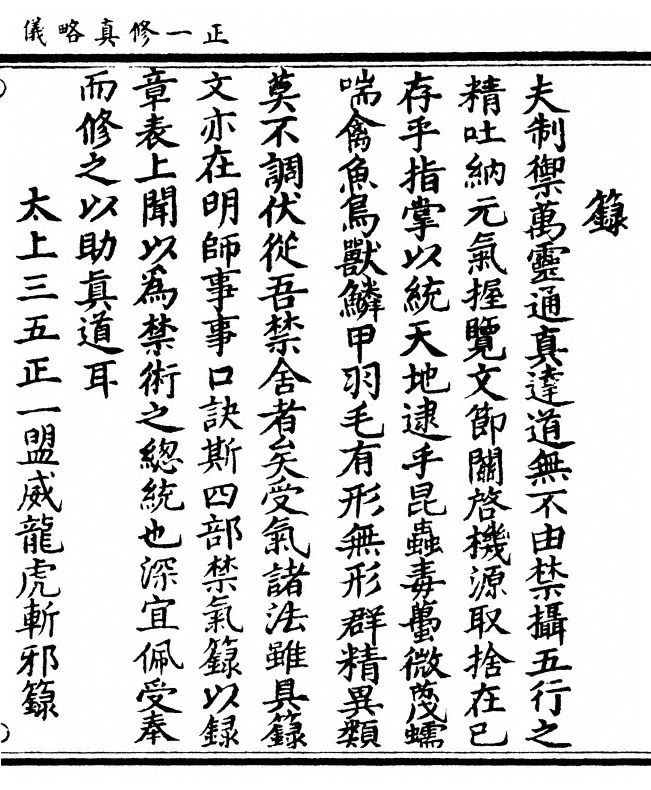 正一修真略儀
籙
夫制禦萬靈通真達道無不由禁攝五行之
精吐納元氣握覽文節關啓機源取捨在已
存乎指掌以統天地逮乎昆蟲毒蠆微蔑蠕
喘禽魚鳥獸鱗甲羽毛有形無形群精異類
莫不調伏從吾禁舍者矣受氣諸法雖具籙
文亦在明師事事口訣斯四部禁氣籙以録
章表上聞以為禁術之緫統也深宜佩受奉
而修之以助真道耳
太上三五正一盟威龍虎斬邪籙